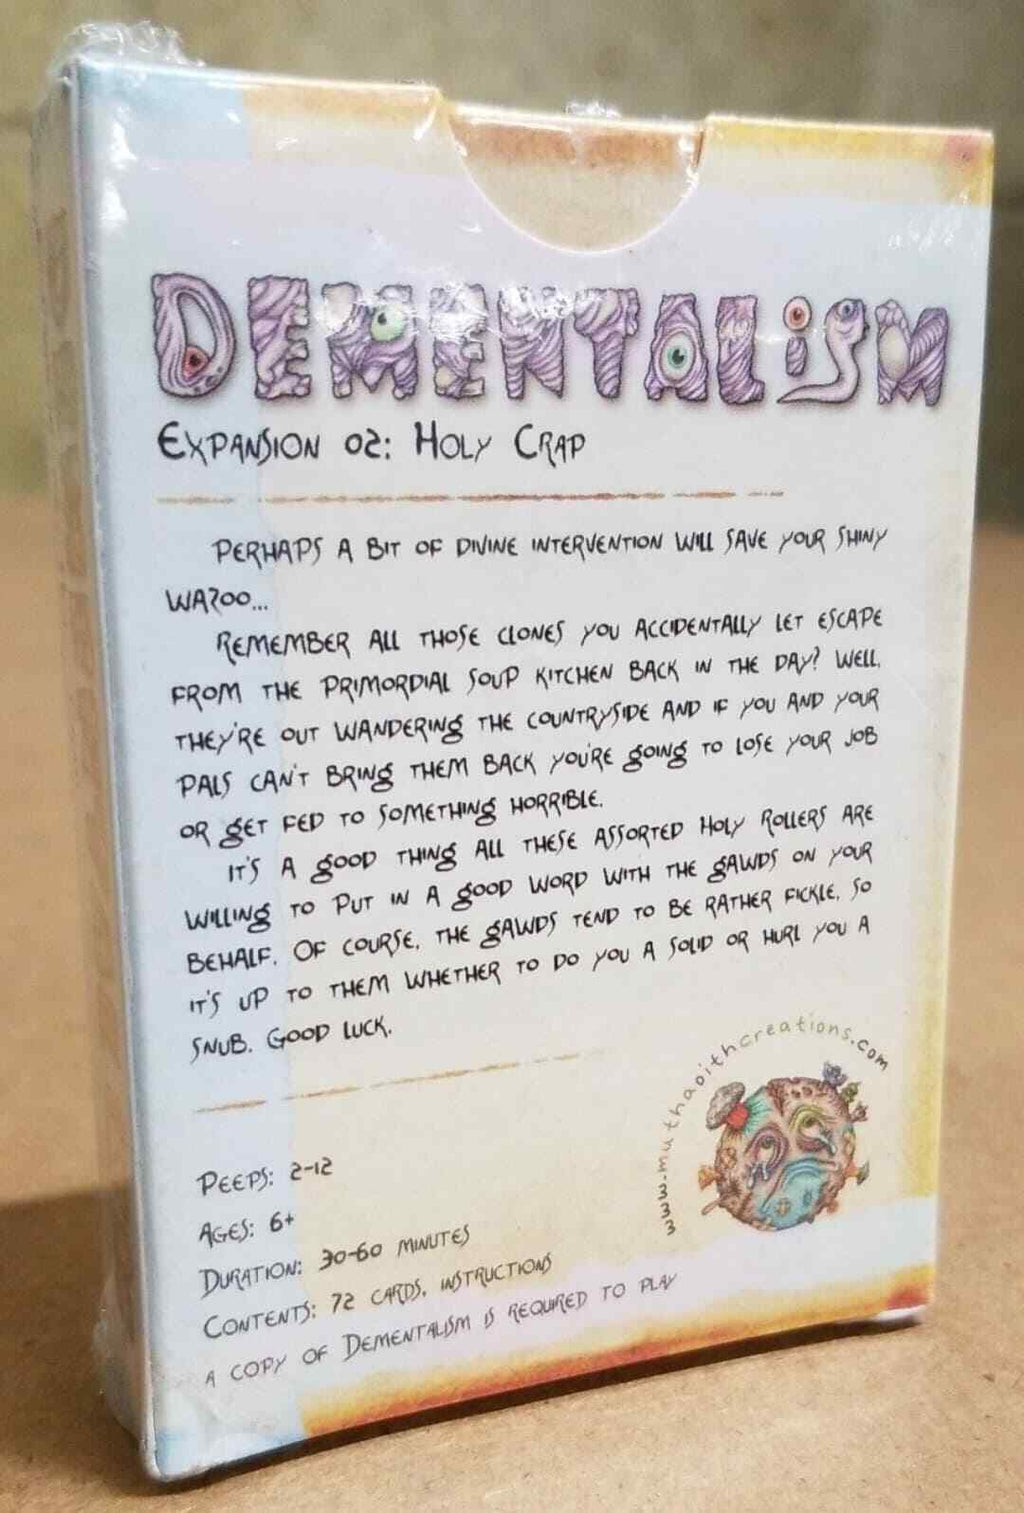 DEMENTALiSM
EXPANSION 02: HOLY CRAP
PERHAPS A BIT OF DIVINE INTERVENTION WILL SAVE YOUR SHINY
WAZOO...
REMEMBER ALL THOSE CLONES YOU ACCIDENTALLY LET ESCAPE
FROM THE PRIMORDIAL SOUP KITCHEN BACK IN THE DAY? WELL,
THEY'RE OUT WANDERING THE COUNTRYSIDE AND IF YOU AND YOUR
PALS CAN'T BRING THEM BACK YOU'RE GOING TO LOSE YOUR JOB
OR GET FED TO SOMETHING HORRIBLE.
IT'S A GOOD THING ALL THESE ASSORTED HOLY ROLLERS ARE
WILLING TO PUT IN A GOOD WORD WITH THE GAWDS ON YOUR
BEHALF. OF COURSE, THE GAWDS TEND TO BE RATHER FICKLE, SO
IT'S UP TO THEM WHETHER TO DO YOU A SOLID OR HURL YOU A
SNUB. GOOD LUCK.
www.muthaoithcreations.com
PEEPS: 2-12
AGES: 6+
DURATION: 30-60 MINUTES
CONTENTS: 72 CARDS, INSTRUCTIONS
A COPY OF DEMENTALISM IS REQUIRED TO PLAY